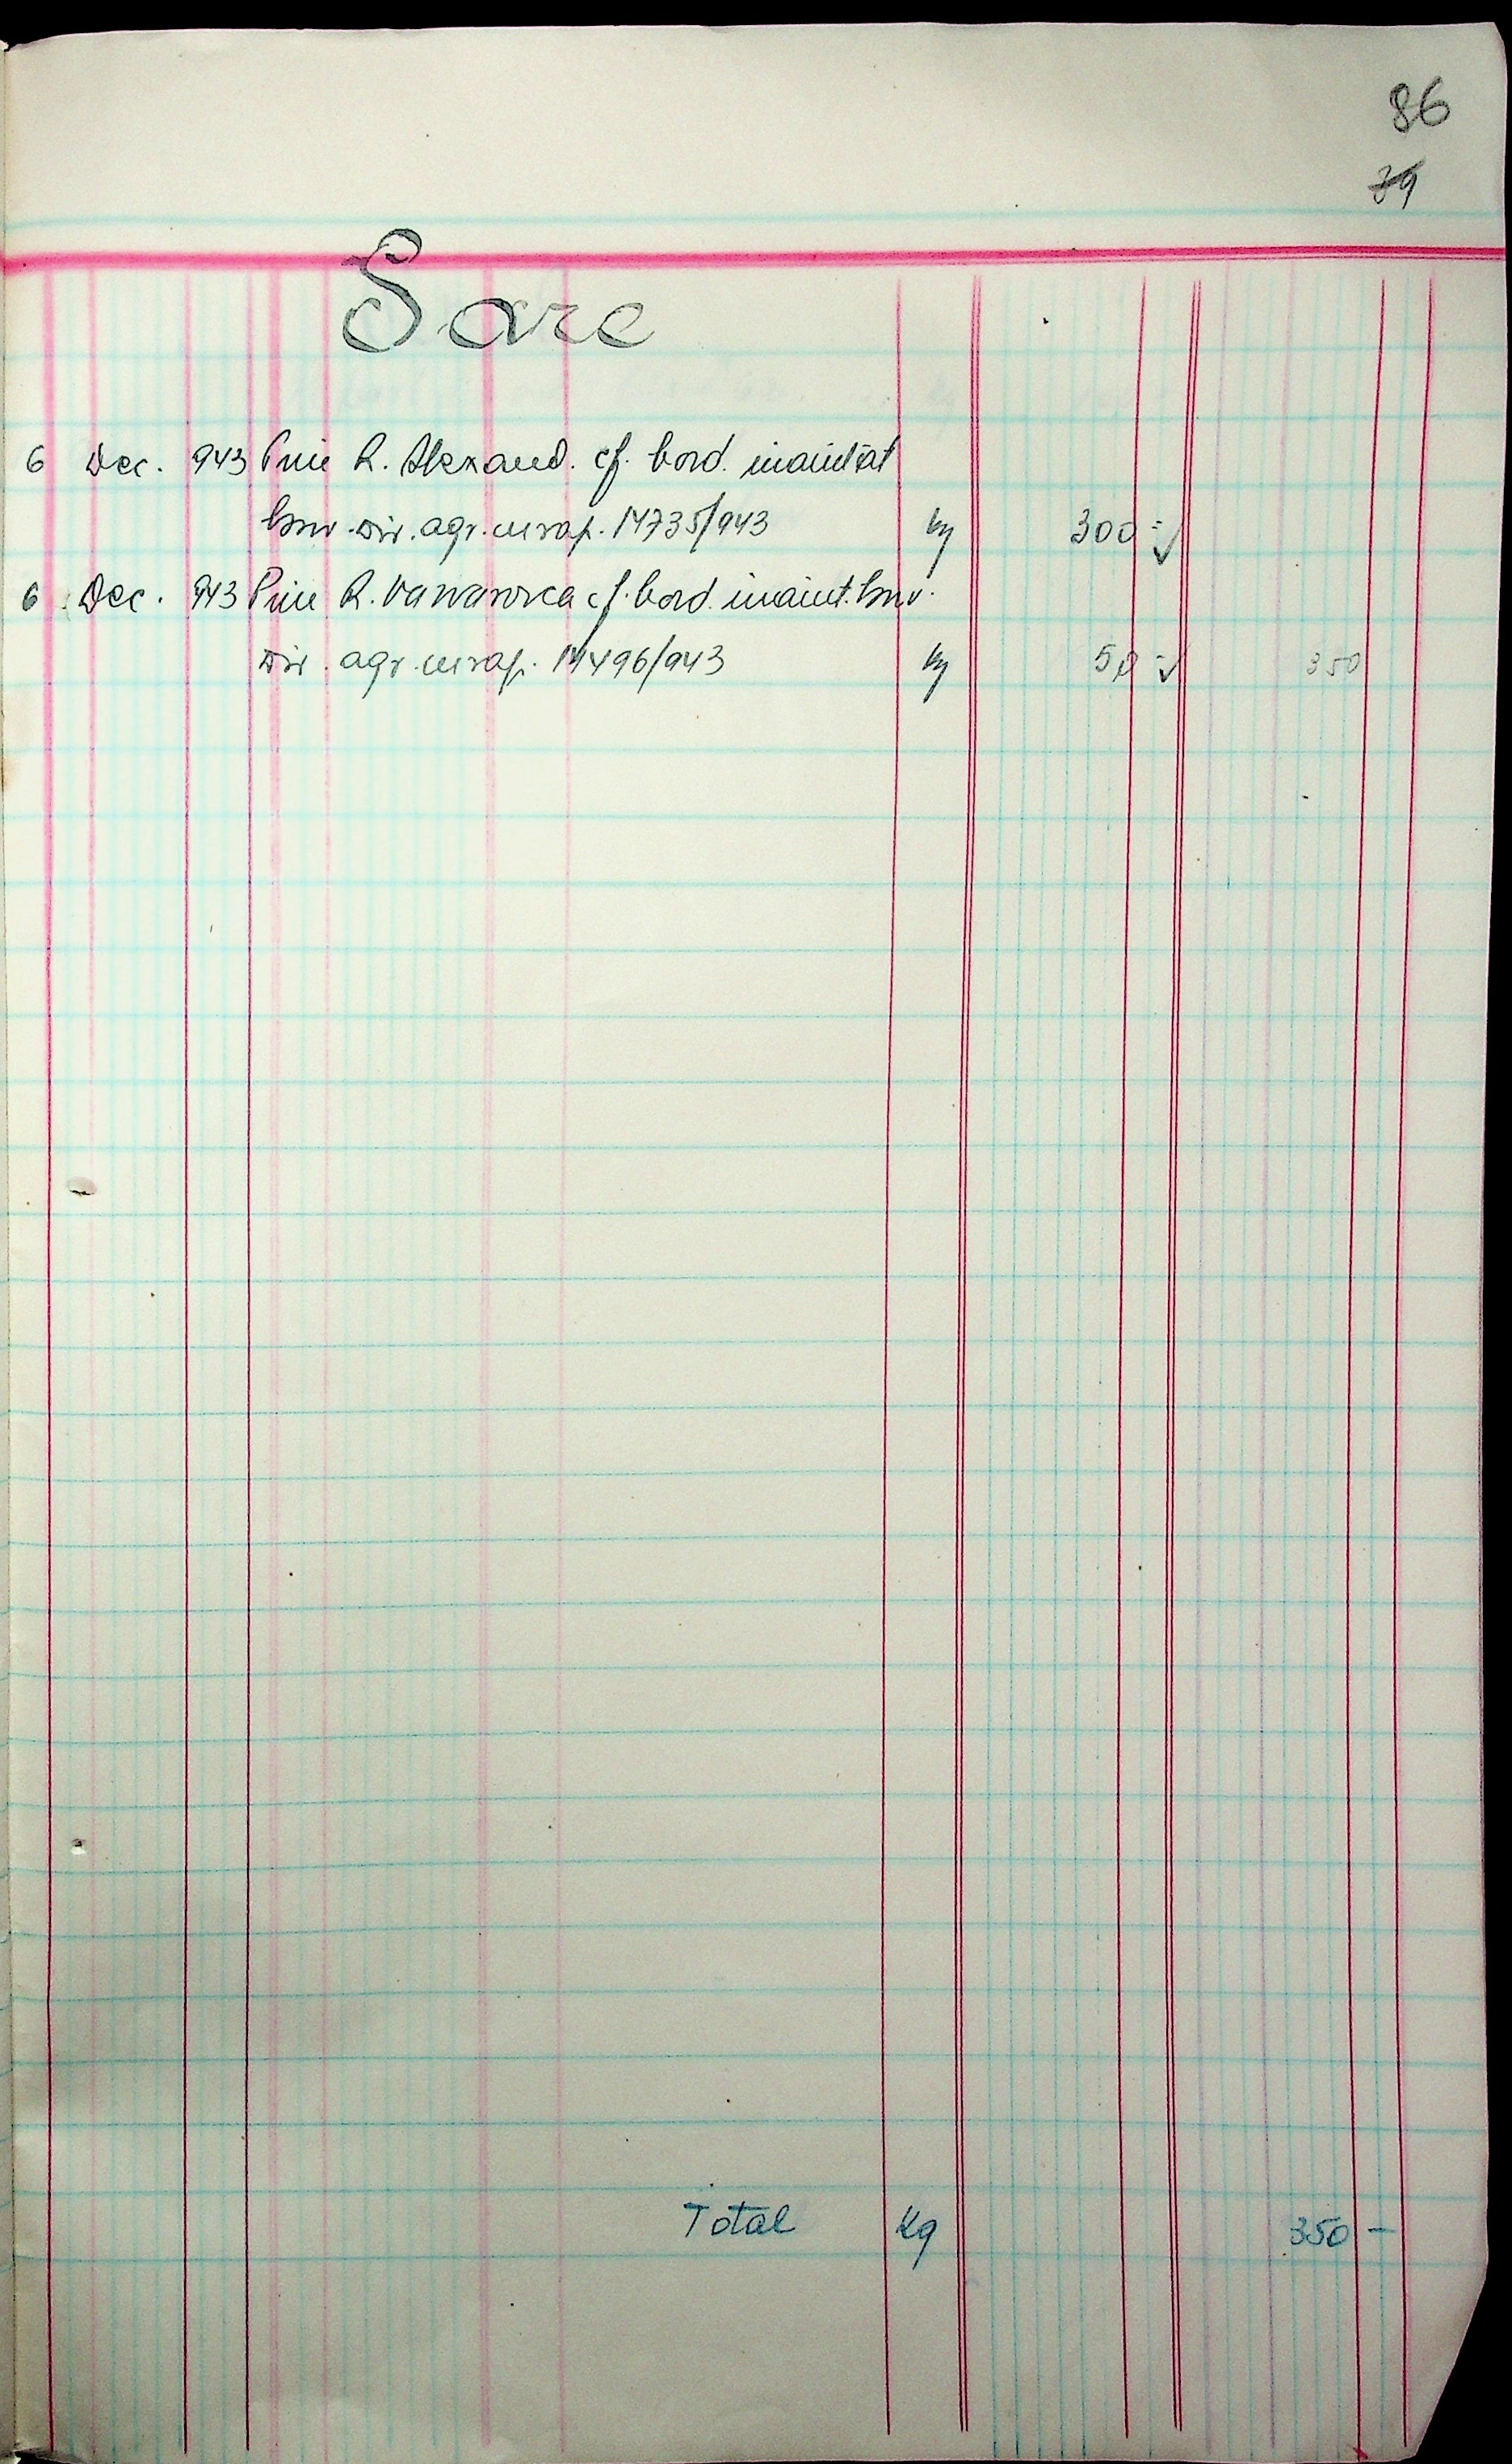 86
39
Sare
6 Dec. 943 Prin R. Alexand. cf. bord. inaintat
dir. agr. 14735/943 kg 300 -
6 Dec. 943 Prin R. cf. bord. inaint.
Dir. agr. 14496/943 kg 50 - 350
Total Kg 350 -